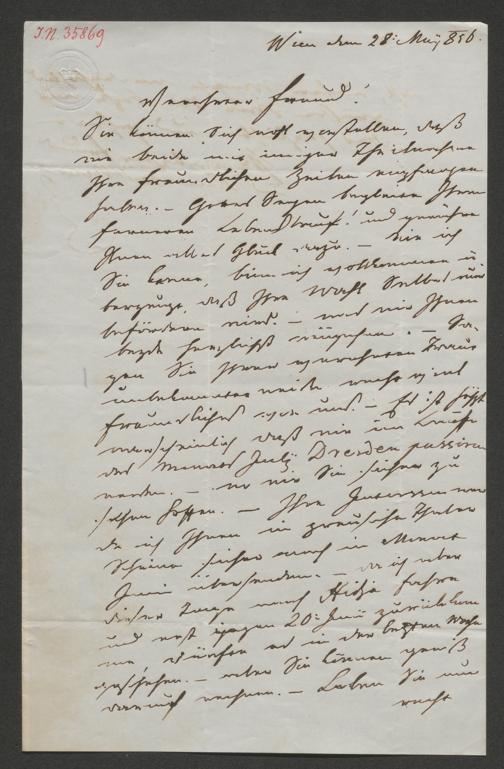 I.N. 35869
Wien den 28: May 856.
Verehrter Freund!
Sie können Sich wohl vorstellen, daß
wir beide mit inniger Theilnahme
Ihre freundlichen Zeilen empfangen
haben. – Gottes Segen begleite Ihren
ferneren Lebenslauf! und gewähre
Ihnen alles Glück dazu. – Wie ich
Sie kenne, bin ich vollkommen ü
berzeugt, daß Ihre Wahl Selbes nur
befördern wird. – was wir Ihnen
beyde herzlichst wünschen. – Sa-
gen Sie Ihrer verehrten Braut
unbekannter weise recht viel
freundliches von uns. – Es ist höchst
wahrscheinlich daß wir im Laufe
des Monats July Dresden passiren
werden. – wo wir Sie sicher zu
sehen hoffen. – Ihre Interessen werde
ich Ihnen in preußische Thaler
Scheine sicher noch im Monat
Juni übersenden. – da ich aber
dieser Tage nach fahre
und erst gegen 20: Juni zurückkom
me, dürfte es in der letzten Woche
geschehen. – aber Sie können gewiß
darauf rechnen. – Leben Sie nun
recht